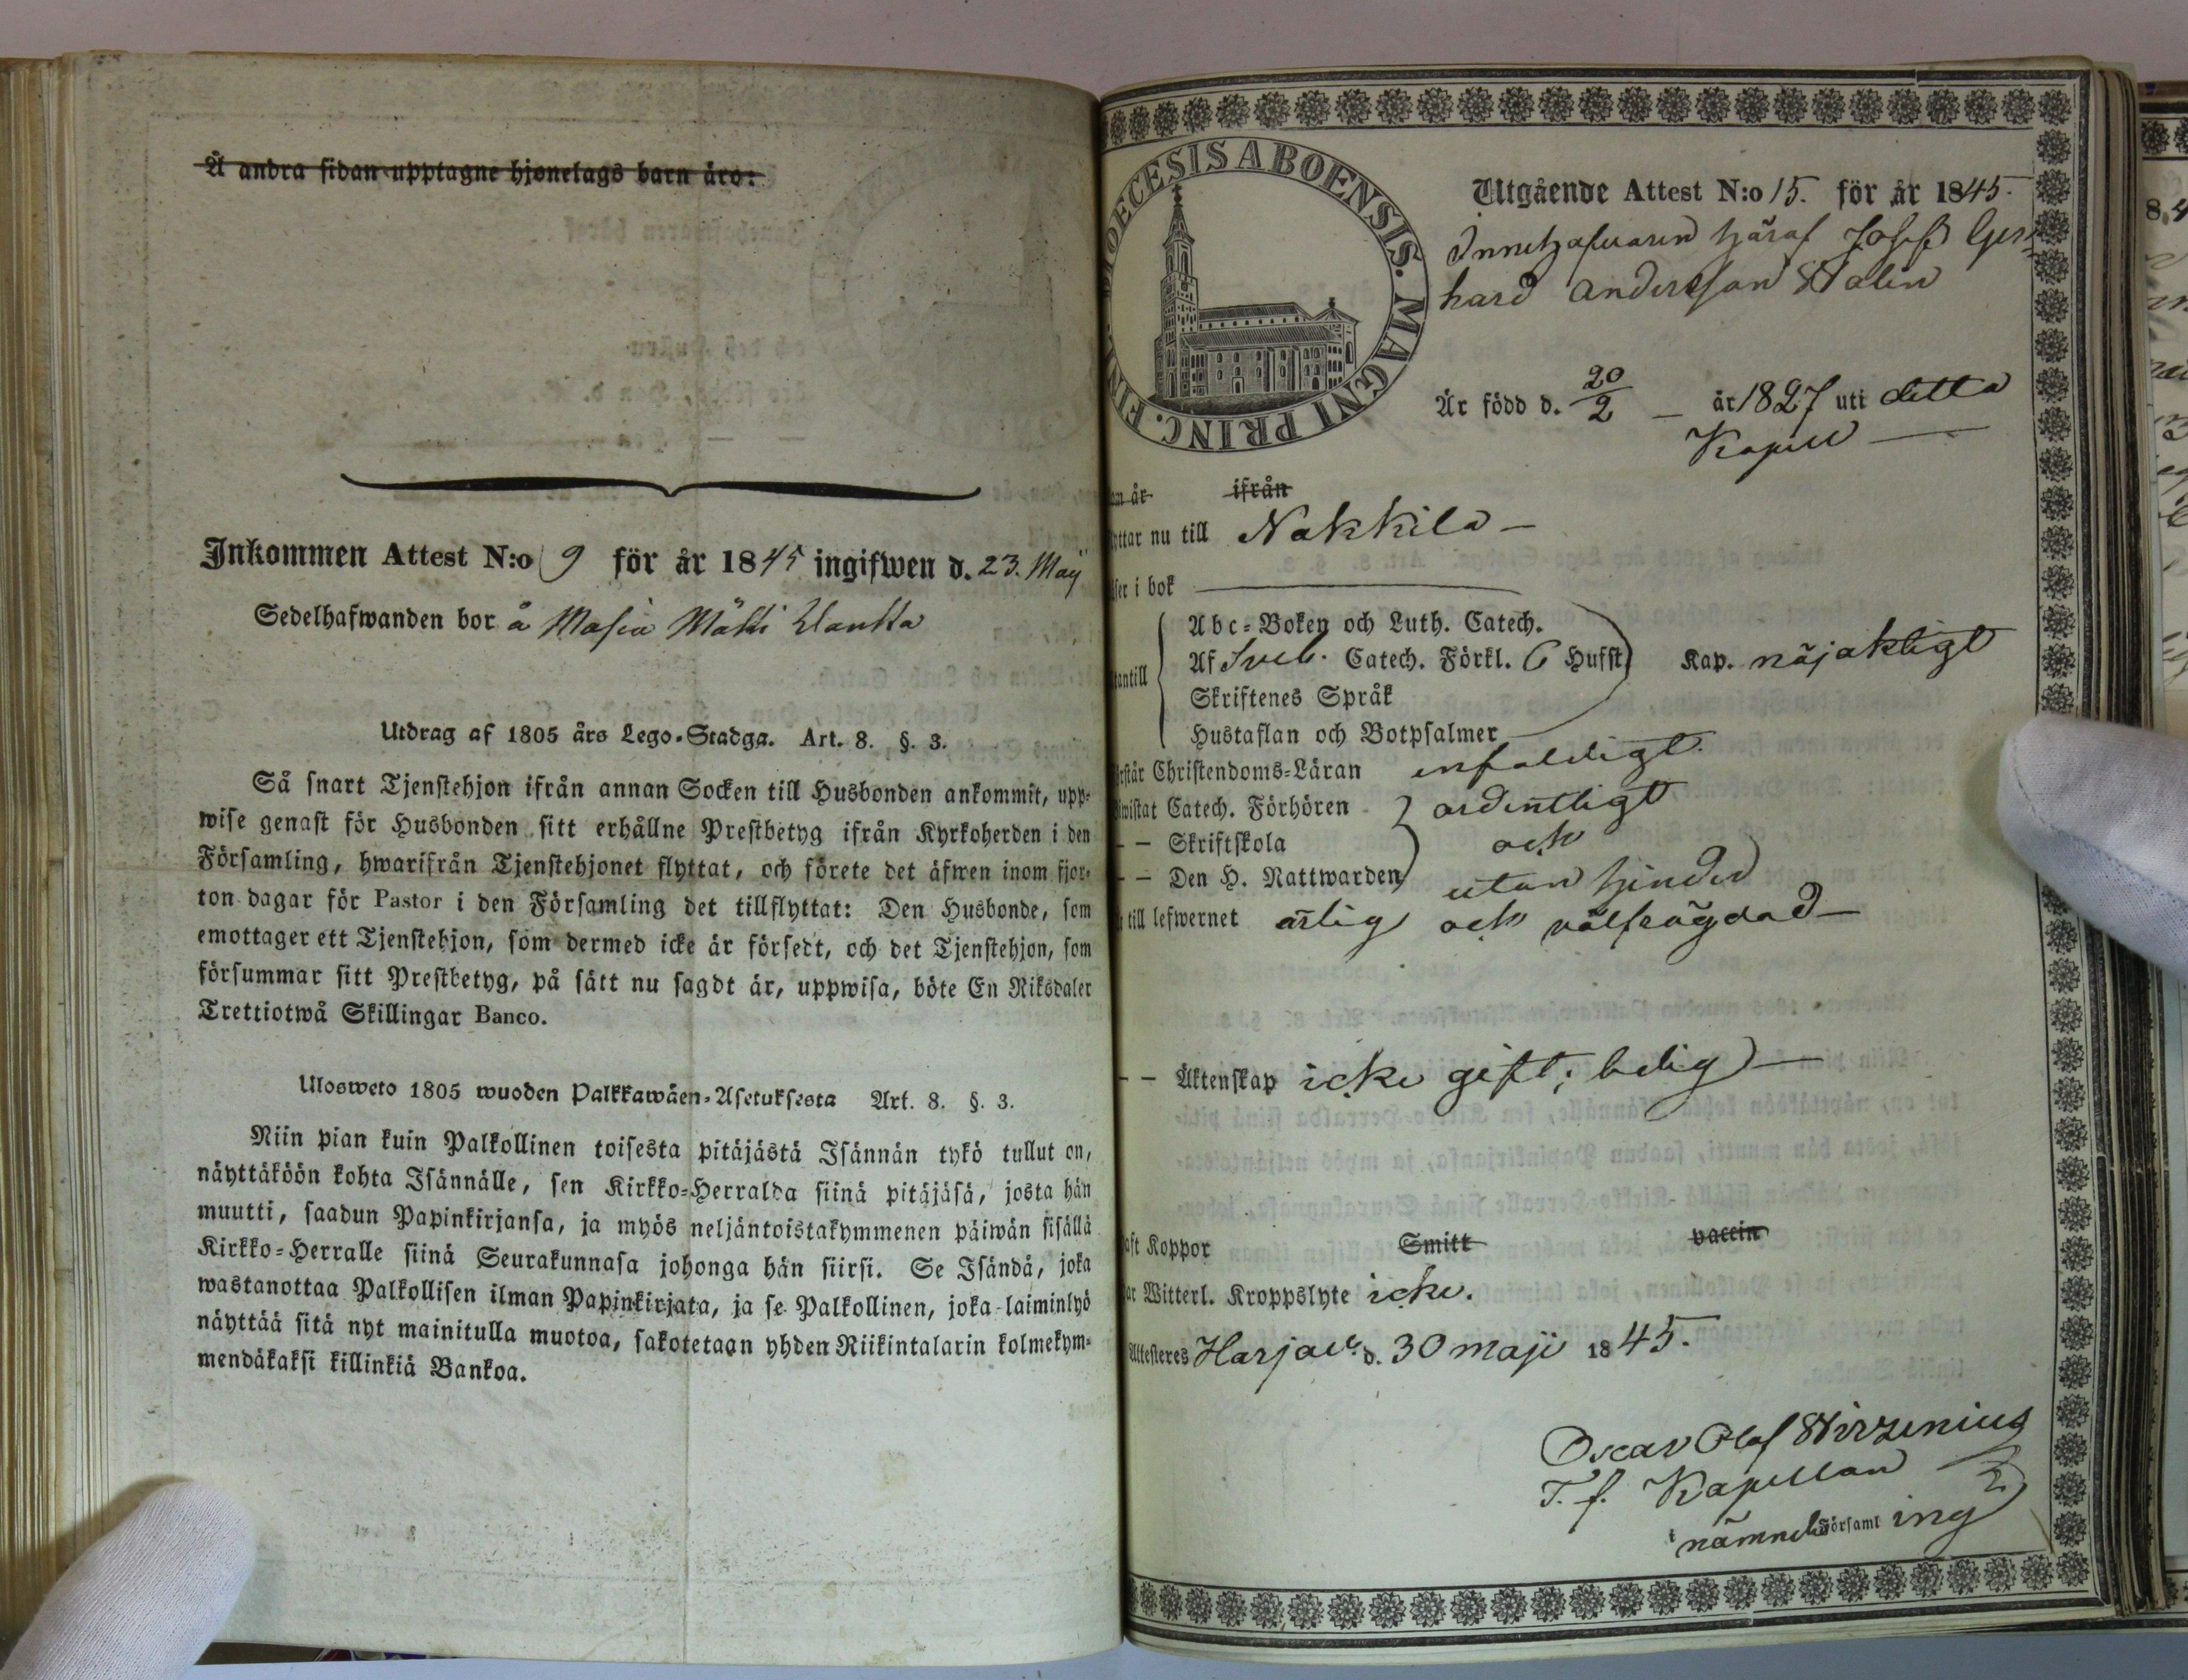 Å andra sidan upptagne hjonelags barn äro:
Inkommen Attest N:o 9 för år 1845 ingifwen d. 23. Maij
Sedelhafwanden bor å Masia Mätti
Utdrag af 1805 års Lego-Stadga. Art. 8. §. 3.
Så snart Tjenstehjon ifrån annan Socken till Husbonden ankommit, upp-
wise genast för Husbonden sitt erhållne Prestbetyg ifrån Kyrkoherden i den
Församling, hwarifrån Tjenstehjonet flyttat, och förete det äfwen inom fjor-
ton dagar för Pastor i den Församling det tillflyttat: Den Husbonde, som
emottager ett Tjenstehjon, som dermed icke är försedt, och det Tjenstehjon, som
försummar sitt Prestbetyg, på sätt nu sagdt är, uppwisa, böte En Riksdaler
Trettiotwå Skillingar Banco.
Ulosweto 1805 wuoden Palkkawäen-Asetuksesta Art. 8. §. 3.
Niin pian kuin Palkollinen toisesta pitäjästä Isännän tykö tullut on,
näyttäköön kohta Isännälle, sen Kirkko-Herralda siinä pitäjäsä, josta hän
muutti, saadun Papinkirjansa, ja myös neljäntoistakymmenen päiwän sisällä
Kirkko-Herralle siinä Seurakunnasa johonga hän siirsi. Se Isändä, joka
wastanottaa Palkollisen ilman Papinkirjata, ja se Palkollinen, joka laiminlyö
näyttää sitä nyt mainitulla muotoa, sakotetaan yhden Riikintalarin kolmekym-
mendäkaksi killinkiä Bankoa.
DIOECESIS ABOENSIS. MAGNI PRINC. FINL.
Utgående Attest N:o 15. för år 1845.
Innehafwaren häraf Josef Ger-
hard Andersson Walin
Är född d. 20/2 – år 1827 uti detta
Kapell —
om år ifrån
yttar nu till Nakkila –
äser i bok —
Abc-Boken och Luth. Catech.
antill Af Sveb. Catech. Förkl. 6 Hufst. Kap. nöjaktigt
Skriftenes Språk
Hustaflan och Botpsalmer
rstår Christendoms-Läran enfaldigt.
iwistat Catech. Förhören ordentligt
– – Skriftskola och
– – Den H. Nattwarden utan hinder
till lefwernet ärlig och välfrägdad –
– – Äktenskap icke gift; ledig –
aft Koppor Smitt vaccin
ar Witterl. Kroppslyte icke.
Attesteres Harjav. d. 30 maji 1845.
Oscar Olof Wirzenius
T. f. Kapellan
i nämnde Församling